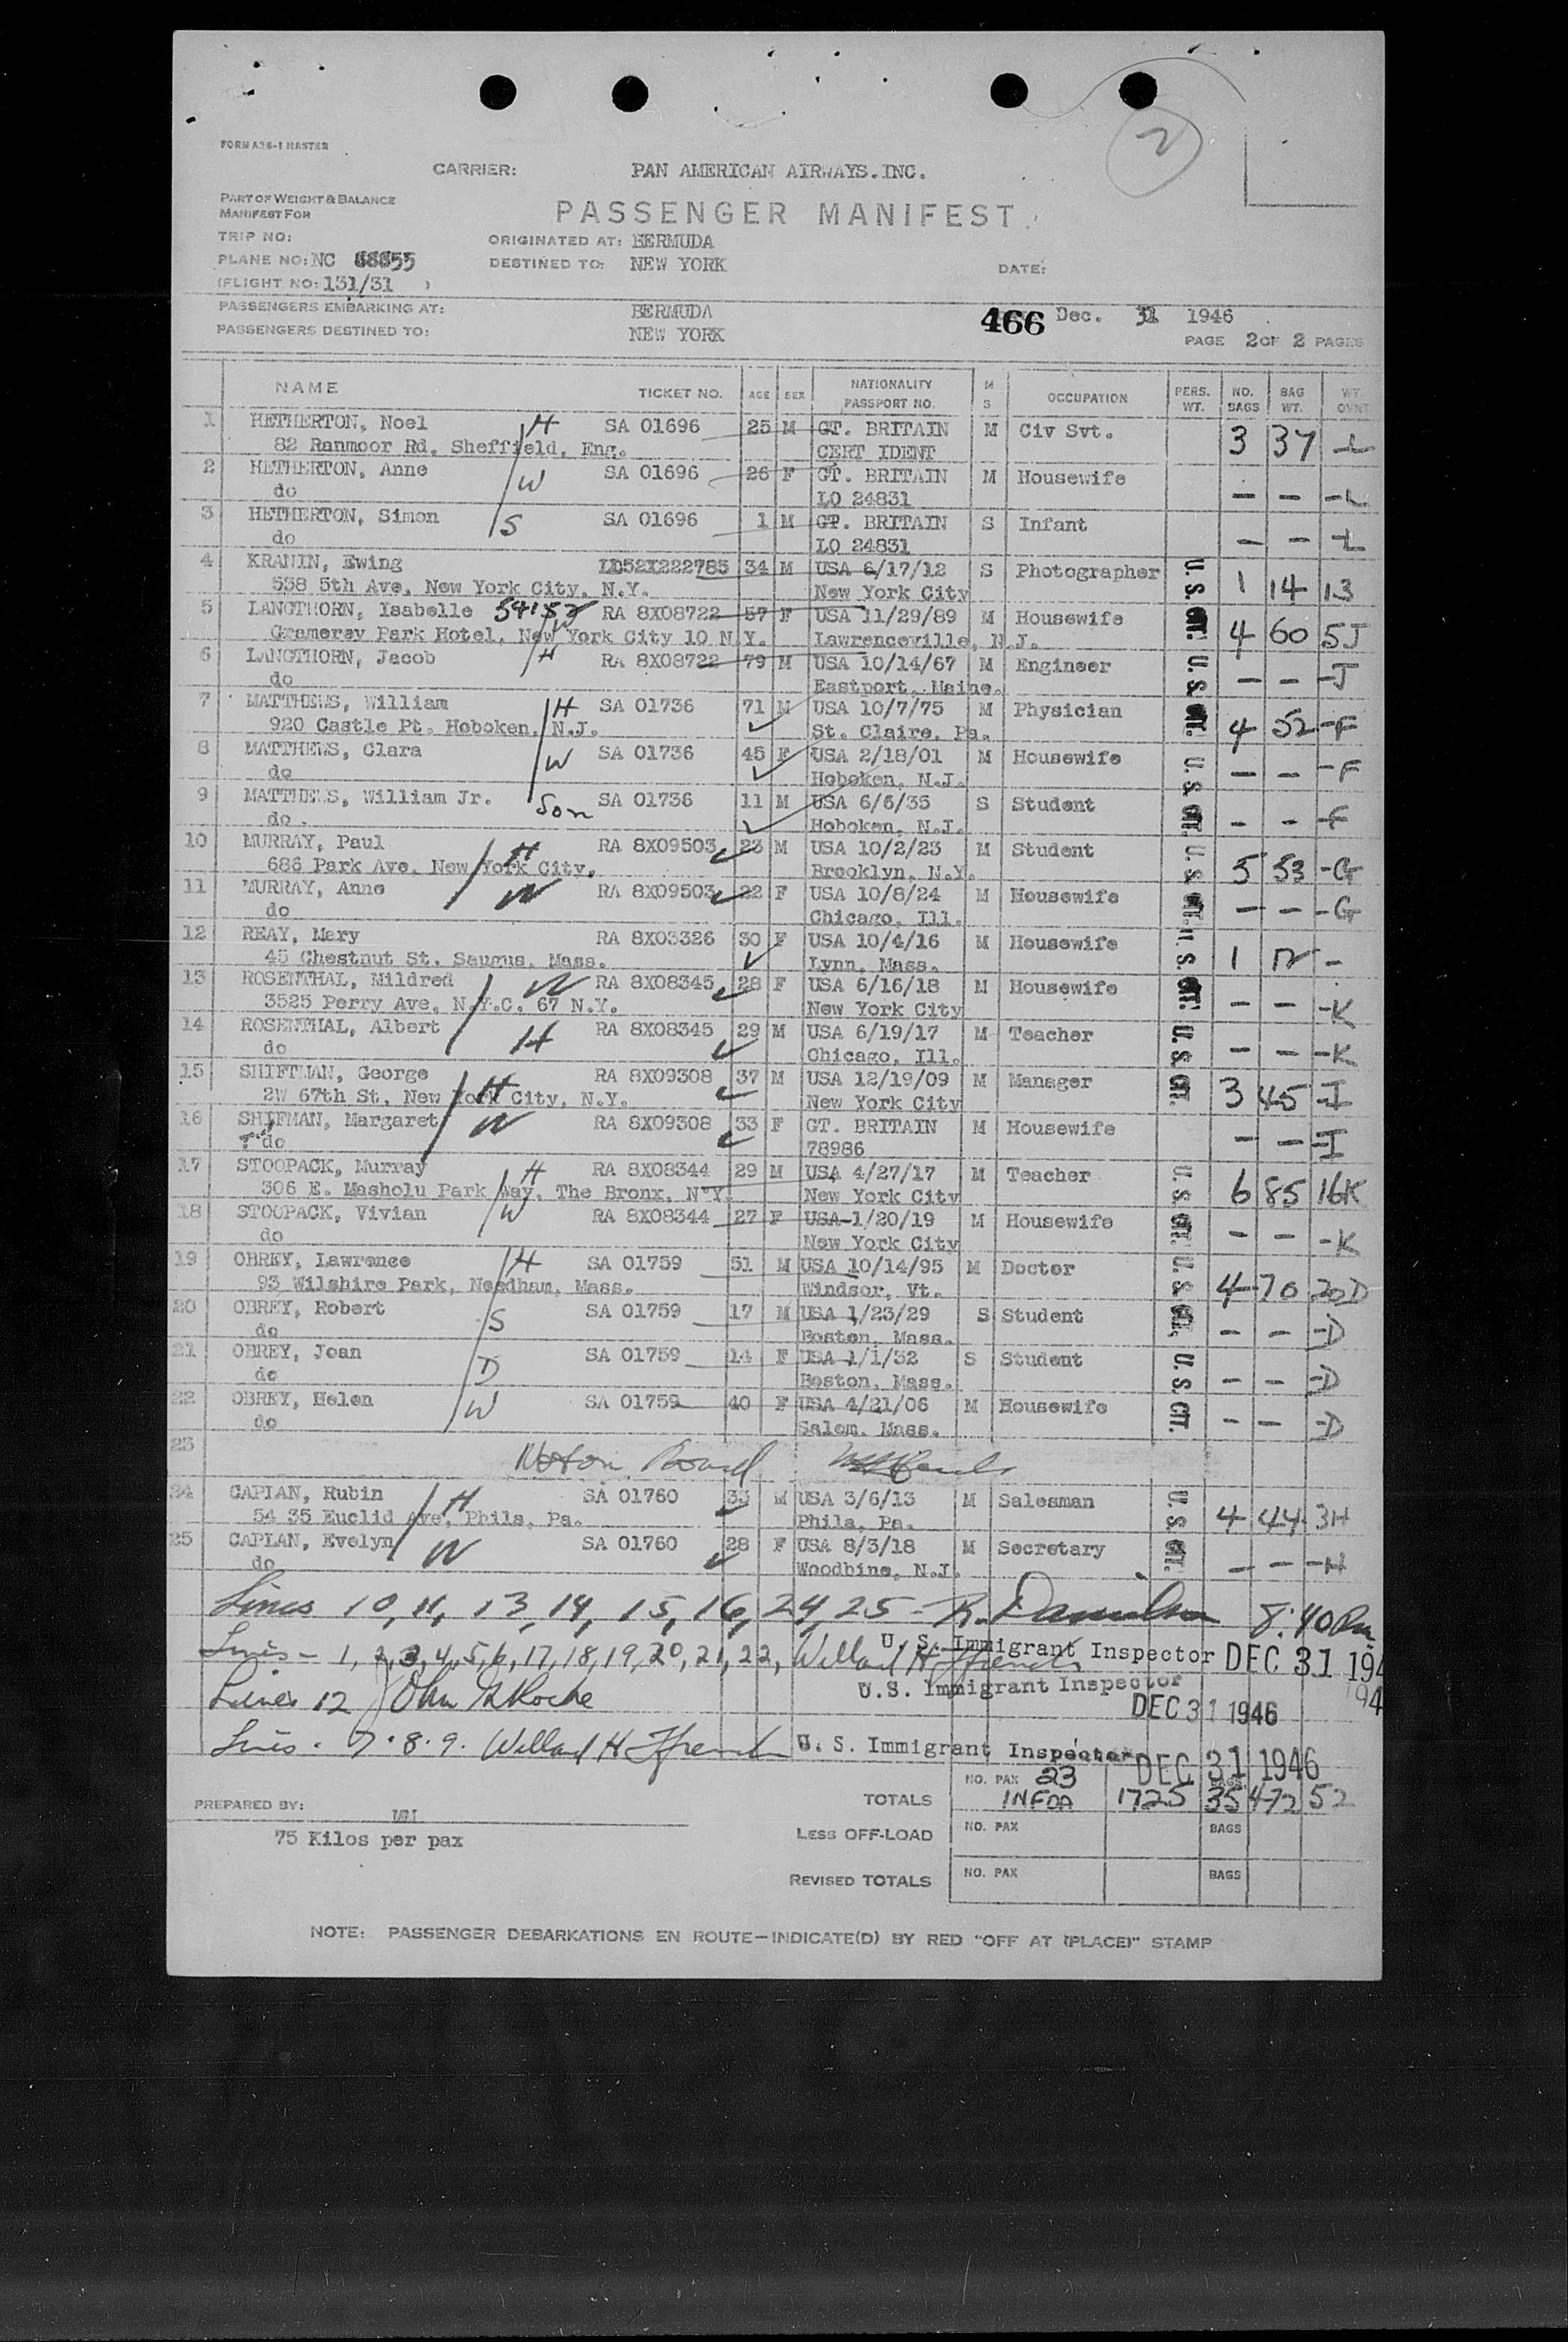 2
FORM A26-1 MASTER
CARRIER: PAN AMERICAN AIRWAYS.INC.
PART OF WEIGHT & BALANCE
MANIFEST FOR
PASSENGER MANIFEST
TRIP NO:
ORIGINATED AT: BERMUDA
PLANE NO: NC 88855
DESTINED TO: NEW YORK
DATE:
(FLIGHT NO: 131/31 )
PASSENGERS EMBARKING AT: BERMUDA
466 Dec. 31 1946
PASSENGERS DESTINED TO: NEW YORK
PAGE 2 OF 2 PAGES
NAME TICKET NO. AGE SEX NATIONALITY PASSPORT NO. M S OCCUPATION PERS. WT. NO. BAGS BAG WT. WT. OVNT
1 HETHERTON, Noel H SA 01696 25 M GT. BRITAIN M Civ Svt. 3 37 -L
82 Ranmoor Rd. Sheffield, Eng. CERT IDENT
2 HETHERTON, Anne W SA 01696 26 F GT. BRITAIN M Housewife - - -L
do LO 24831
3 HETHERTON, Simon S SA 01696 1 M GT. BRITAIN S Infant - - -L
do LO 24831
4 KRANIN, Ewing LD52X222785 34 M USA 6/17/12 S Photographer U.S. 1 14 13
558 5th Ave, New York City, N.Y. New York City
5 LANGTHORN, Isabelle 54152 W RA 8X08722 57 F USA 11/29/89 M Housewife CIT. 4 60 5J
Gramercy Park Hotel, New York City 10 N.Y. Lawrenceville, N.J.
6 LANGTHORN, Jacob H RA 8X08722 79 M USA 10/14/67 M Engineer U.S. - - -J
do Eastport, Maine.
7 MATTHEWS, William H SA 01736 71 M USA 10/7/75 M Physician CIT. 4 52 -F
920 Castle Pt. Hoboken, N.J. St. Claire, Pa.
8 MATTHEWS, Clara W SA 01736 45 F USA 2/18/01 M Housewife U.S. - - -F
do Hoboken, N.J.
9 MATTHEWS, William Jr. Son SA 01736 11 M USA 6/6/35 S Student CIT. - - -F
do . Hoboken, N.J.
10 MURRAY, Paul H RA 8X09503 23 M USA 10/2/23 M Student U.S. 5 53 -G
686 Park Ave, New York City, Brooklyn, N.Y.
11 MURRAY, Anne W RA 8X09503 22 F USA 10/8/24 M Housewife CIT. - - -G
do Chicago, Ill.
12 REAY, Mary RA 8X03326 30 F USA 10/4/16 M Housewife U.S. 1 12 -
45 Chestnut St. Saugus, Mass. Lynn, Mass.
13 ROSENTHAL, Mildred W RA 8X08345 28 F USA 6/16/18 M Housewife CIT. - - -K
3525 Perry Ave, N.Y.C. 67 N.Y. New York City
14 ROSENTHAL, Albert H RA 8X08345 29 M USA 6/19/17 M Teacher U.S. - - -K
do Chicago, Ill.
15 SHIFTMAN, George H RA 8X09308 37 M USA 12/19/09 M Manager CIT. 3 45 -I
2W 67th St, New York City, N.Y. New York City
16 SHIFMAN, Margaret W RA 8X09308 33 F GT. BRITAIN M Housewife - - -I
do 78986
17 STOOPACK, Murray H RA 8X08344 29 M USA 4/27/17 M Teacher U.S. 6 85 16K
306 E. Masholu Park Way, The Bronx, N.Y. New York City
18 STOOPACK, Vivian W RA 8X08344 27 F USA 1/20/19 M Housewife CIT. - - -K
do New York City
19 OBREY, Lawrence H SA 01759 51 M USA 10/14/95 M Doctor U.S. 4 70 20D
93 Wilshire Park, Needham, Mass. Windsor, Vt.
20 OBREY, Robert S SA 01759 17 M USA 1/23/29 S Student CIT. - - -D
do Boston, Mass.
21 OBREY, Joan D SA 01759 14 F USA 1/1/32 S Student U.S. - - -D
do Boston, Mass.
22 OBREY, Helen W SA 01759 40 F USA 4/21/06 M Housewife CIT. - - -D
do Salem, Mass.
23 Not on Board
24 CAPLAN, Rubin H SA 01760 33 M USA 3/6/13 M Salesman U.S. 4 44 3H
54 35 Euclid Ave, Phila, Pa. Phila, Pa.
25 CAPLAN, Evelyn W SA 01760 28 F USA 8/3/18 M Secretary CIT. - - -H
do Woodbine, N.J.
Lines 10, 11, 13, 14, 15, 16, 24, 25 - 8:40 Pm
Lines - 1, 2, 3, 4, 5, 6, 17, 18, 19, 20, 21, 22, Willard H Ffrench U. S. Immigrant Inspector DEC 31 194
Lines 12 John A Roche U.S. Immigrant Inspector DEC 31 1946
Lines . 7. 8. 9. Willard H Ffrench U. S. Immigrant Inspector DEC 31 1946
PREPARED BY: MM
TOTALS NO. PAX 23 INFOA 1725 BAGS 35 472 52
75 Kilos per pax
LESS OFF-LOAD NO. PAX BAGS
REVISED TOTALS NO. PAX BAGS
NOTE: PASSENGER DEBARKATIONS EN ROUTE—INDICATE(D) BY RED "OFF AT (PLACE)" STAMP